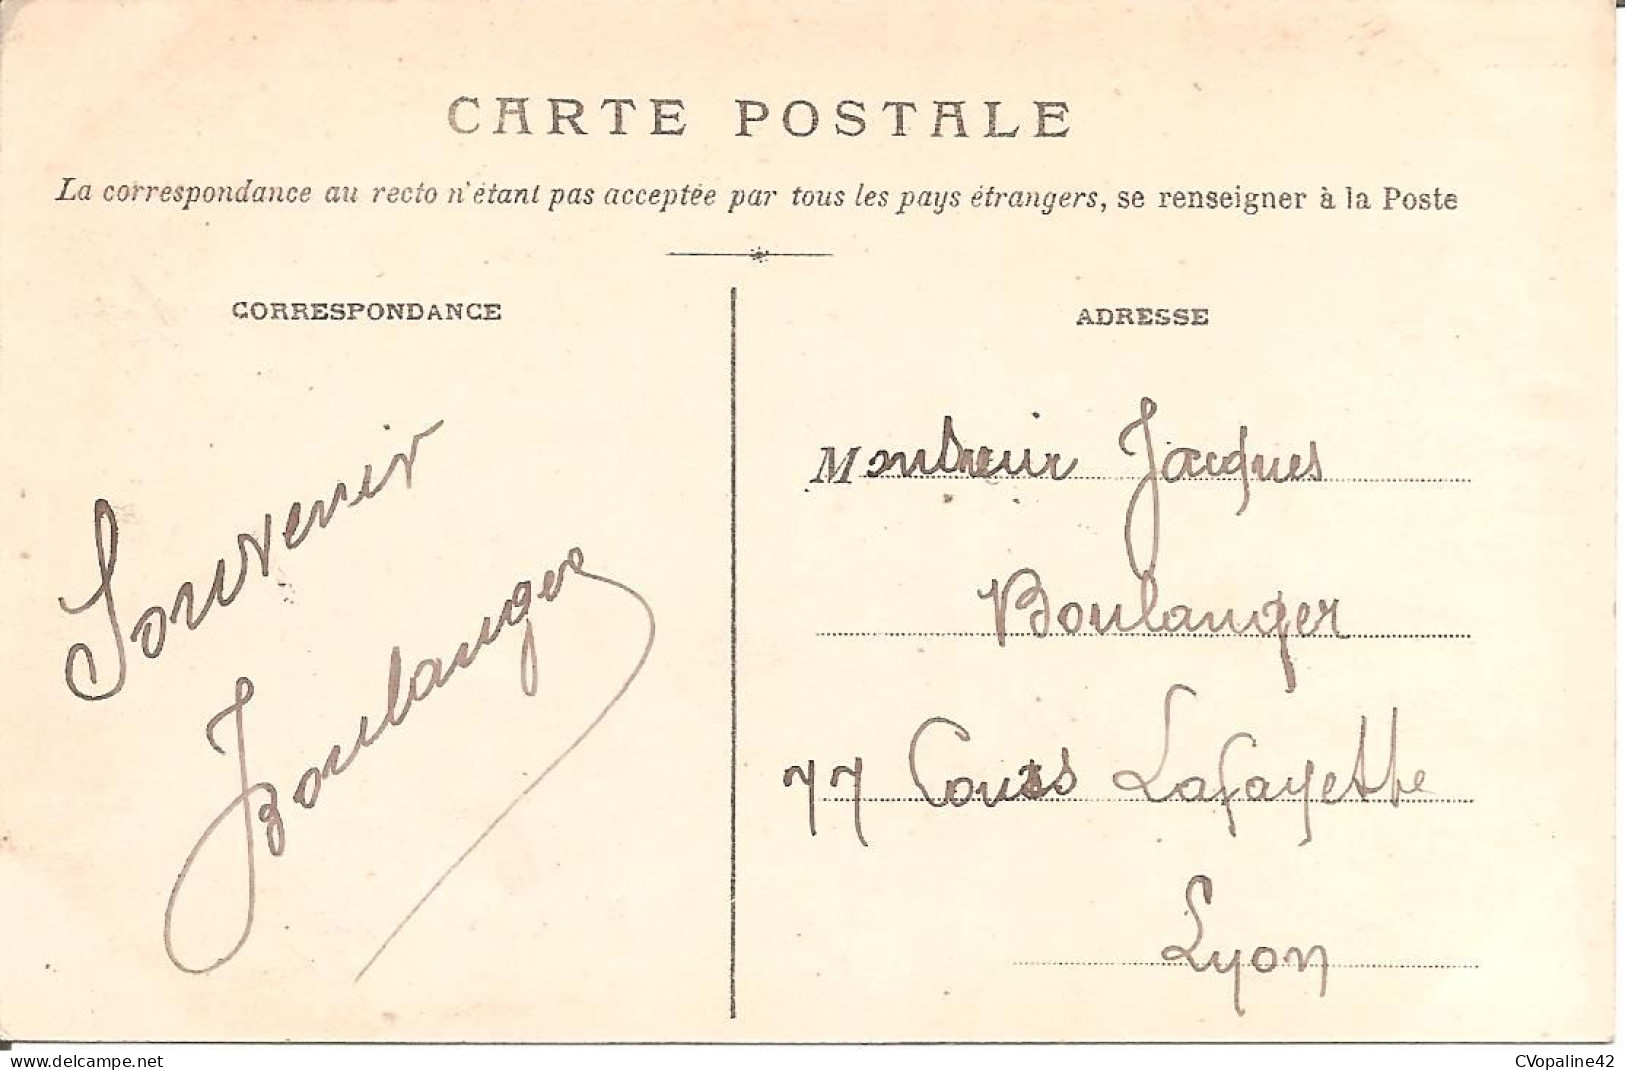 CARTE POSTALE
La correspondance au recto n'étant pas acceptée par tous les pays étrangers, se renseigner à la Poste
CORRESPONDANCE
Souvenir
Boulanger
ADRESSE
Monsieur Jacques
Boulanger
77 Cours Lafayette
Lyon
www.delcampe.net
CVopaline42